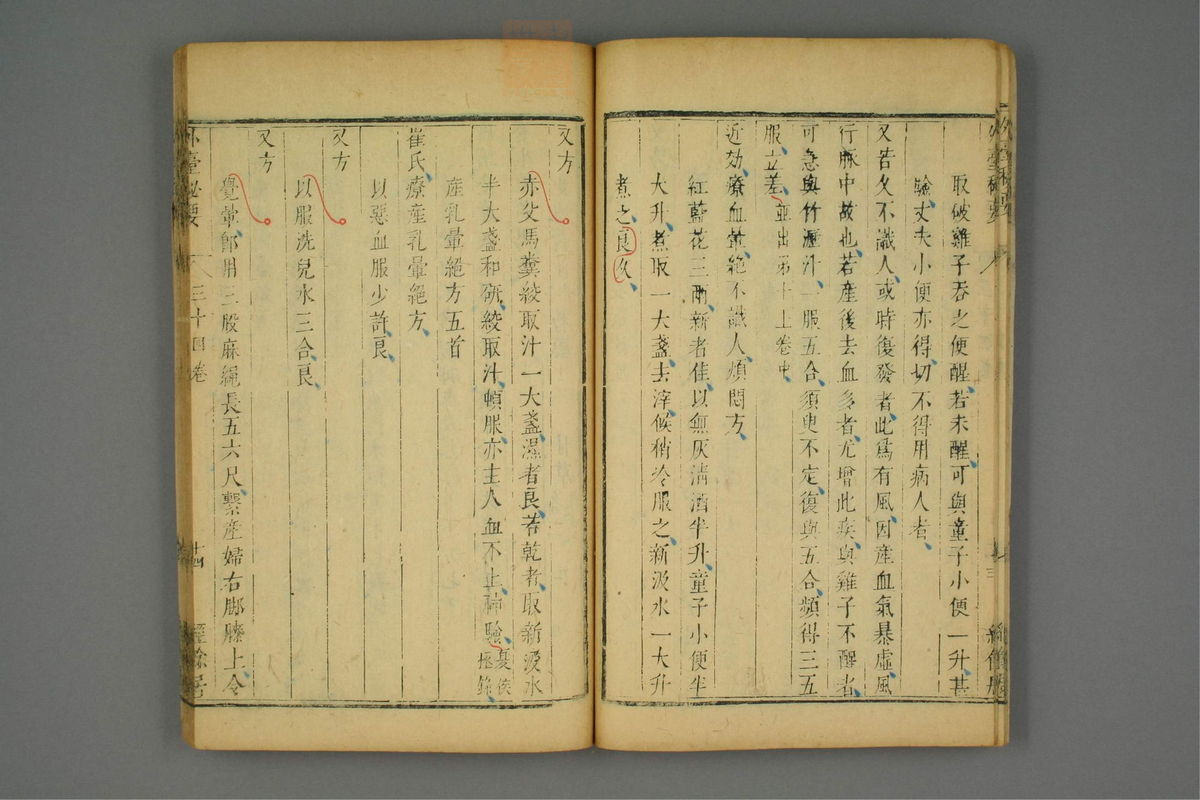 取破雞子吞之便醒若未醒可與童子小便一升甚
驗丈夫小便亦得切不得用病人者
又若久不識人或時復發者此爲有風因產血氣暴虛風
行脈中故也若產後去血多者尤增此疾與雞子不醒者
可急與竹瀝汁一服五合須臾不定復與五合頻得三五
服立差並出第十上卷中
近効療血暈絕不識人煩悶方
紅藍花三兩新者佳以無灰清酒半升童子小便半
大升煮取一大盞去滓候稍冷服之新汲水一大升
煮之良久
又方
赤父馬糞絞取汁一大盞濕者良若乾者取新汲水
半大盞和研絞取汁頓服亦主人血不止神驗
產乳暈絕方五首
崔氏療產乳暈絕方
以惡血服少許良
又方
以服洗兒水三合良
又方
覺暈即用三股麻繩長五六尺繫產婦右脚膝上令
外臺秘要 三十四卷 十四 經餘居